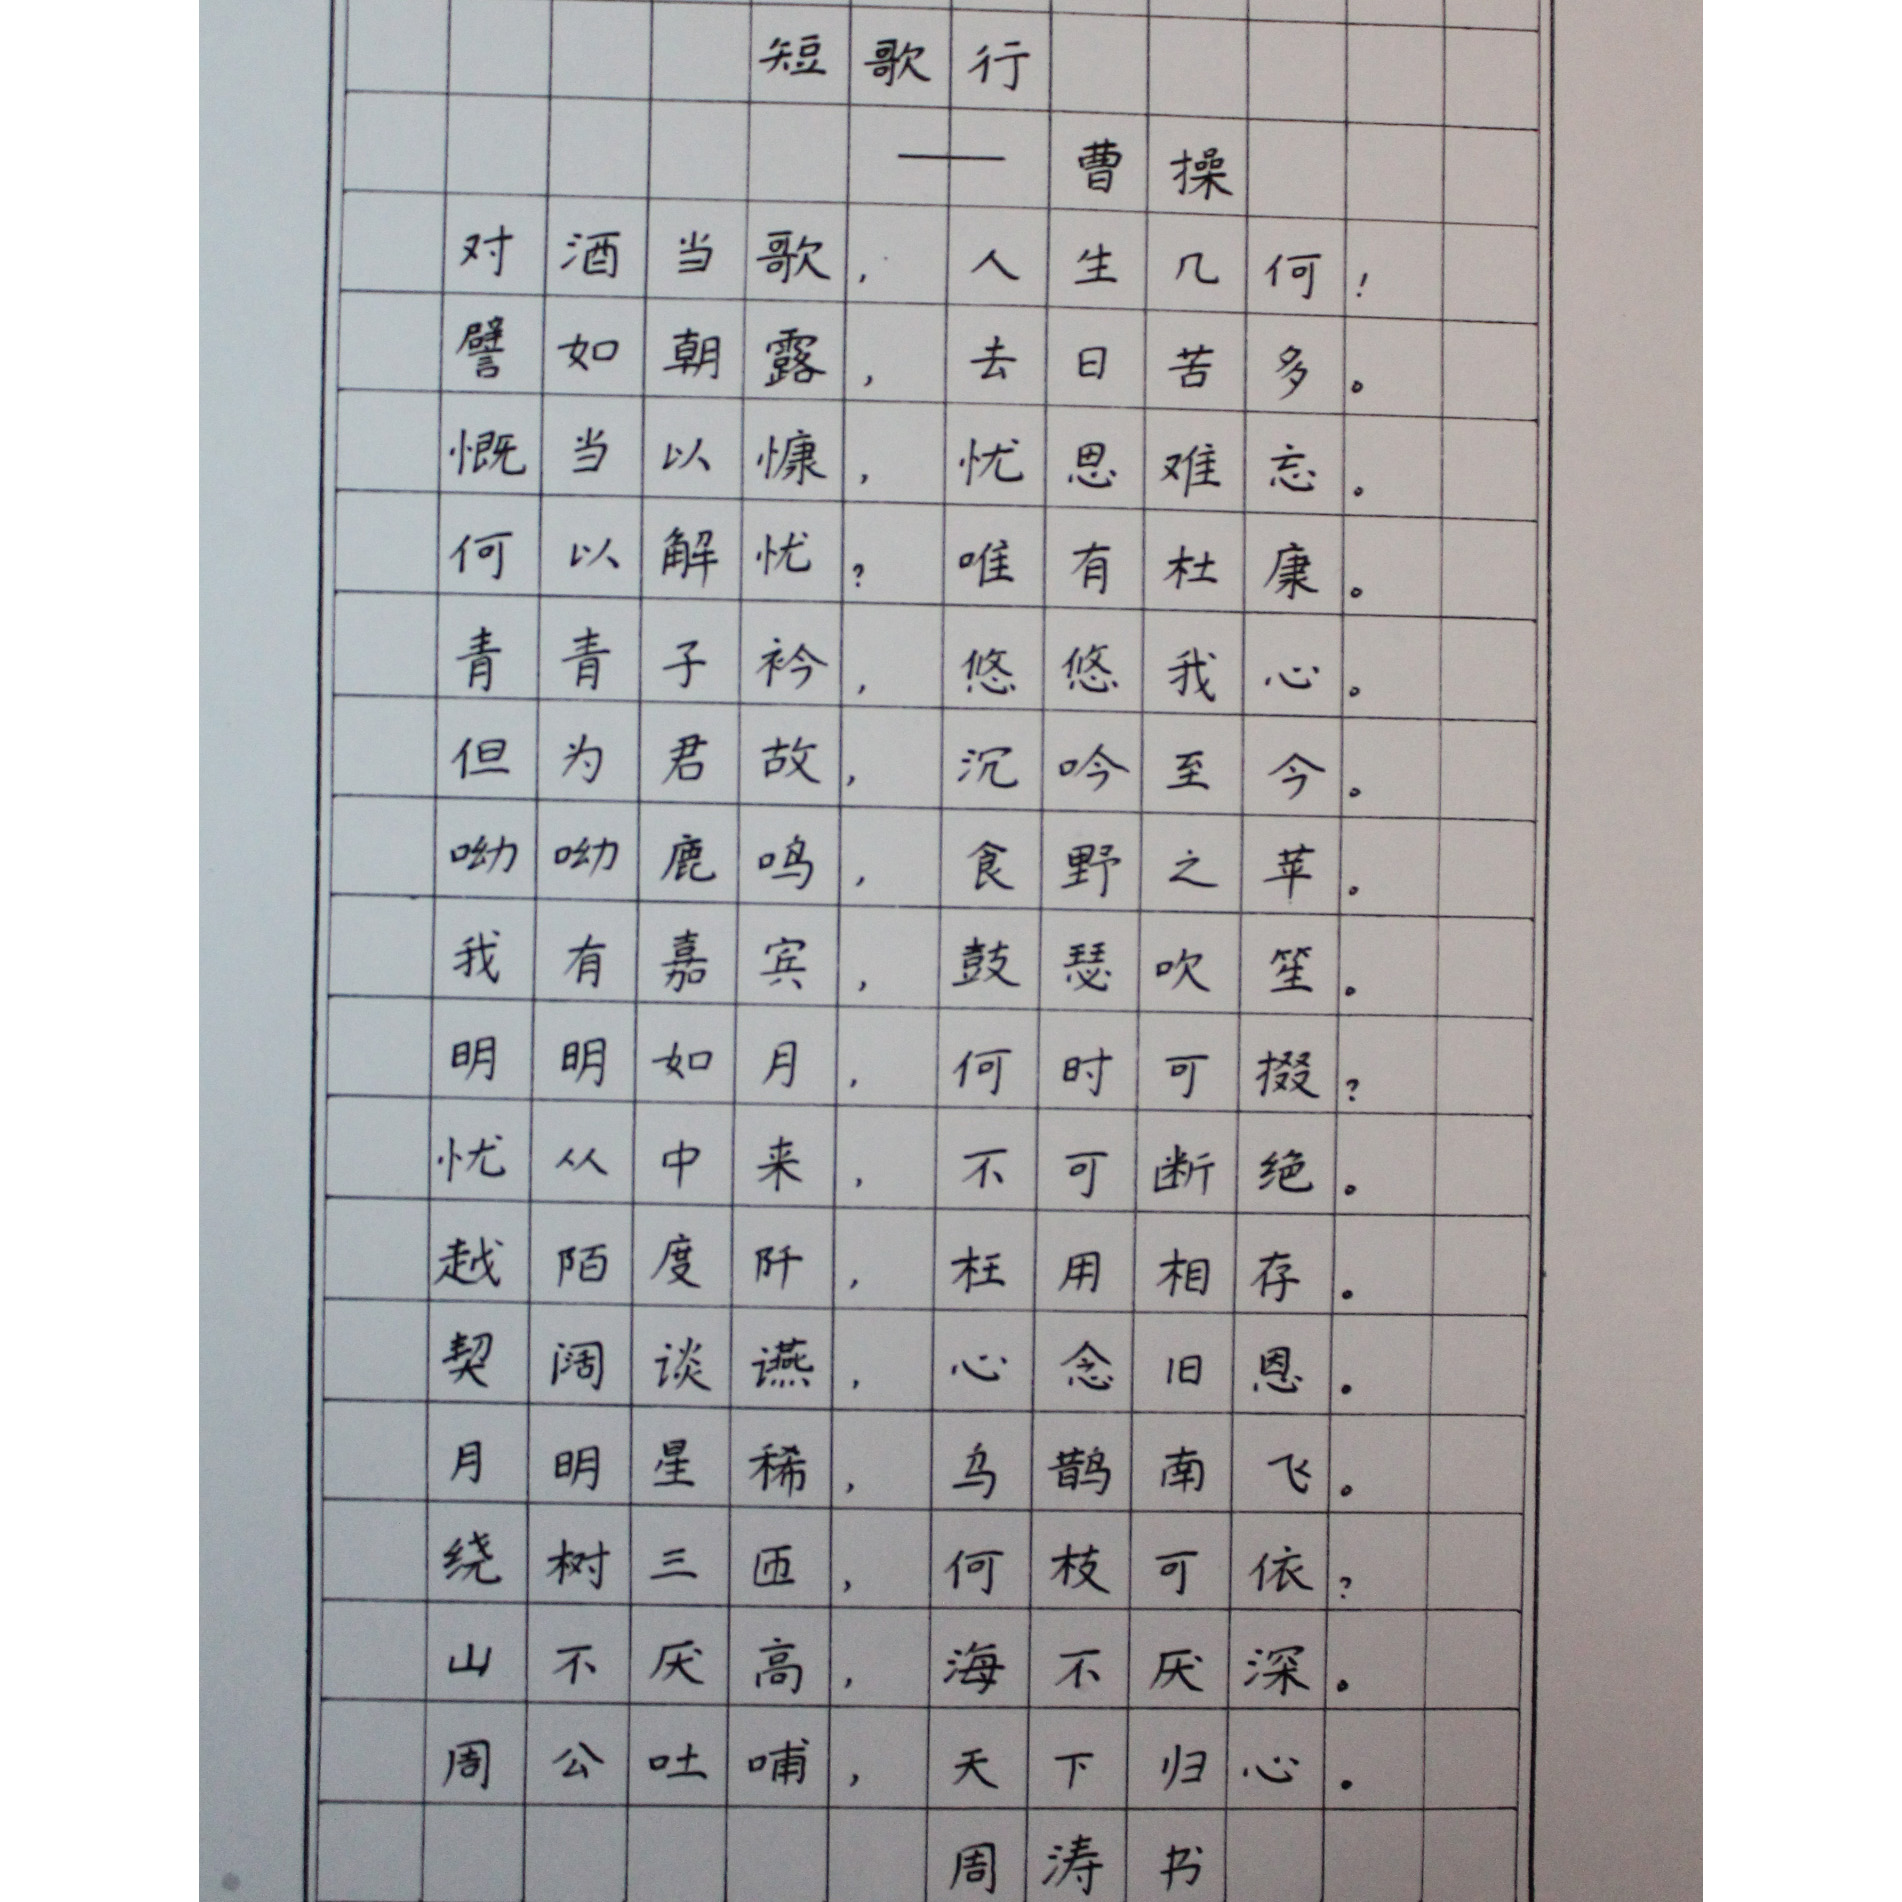 短歌行
——曹操
对酒当歌，人生几何！
譬如朝露，去日苦多。
慨当以慷，忧思难忘。
何以解忧？唯有杜康。
青青子衿，悠悠我心。
但为君故，沉吟至今。
呦呦鹿鸣，食野之苹。
我有嘉宾，鼓瑟吹笙。
明明如月，何时可掇？
忧从中来，不可断绝。
越陌度阡，枉用相存。
契阔谈讌，心念旧恩。
月明星稀，乌鹊南飞。
绕树三匝，何枝可依？
山不厌高，海不厌深。
周公吐哺，天下归心。
周涛书